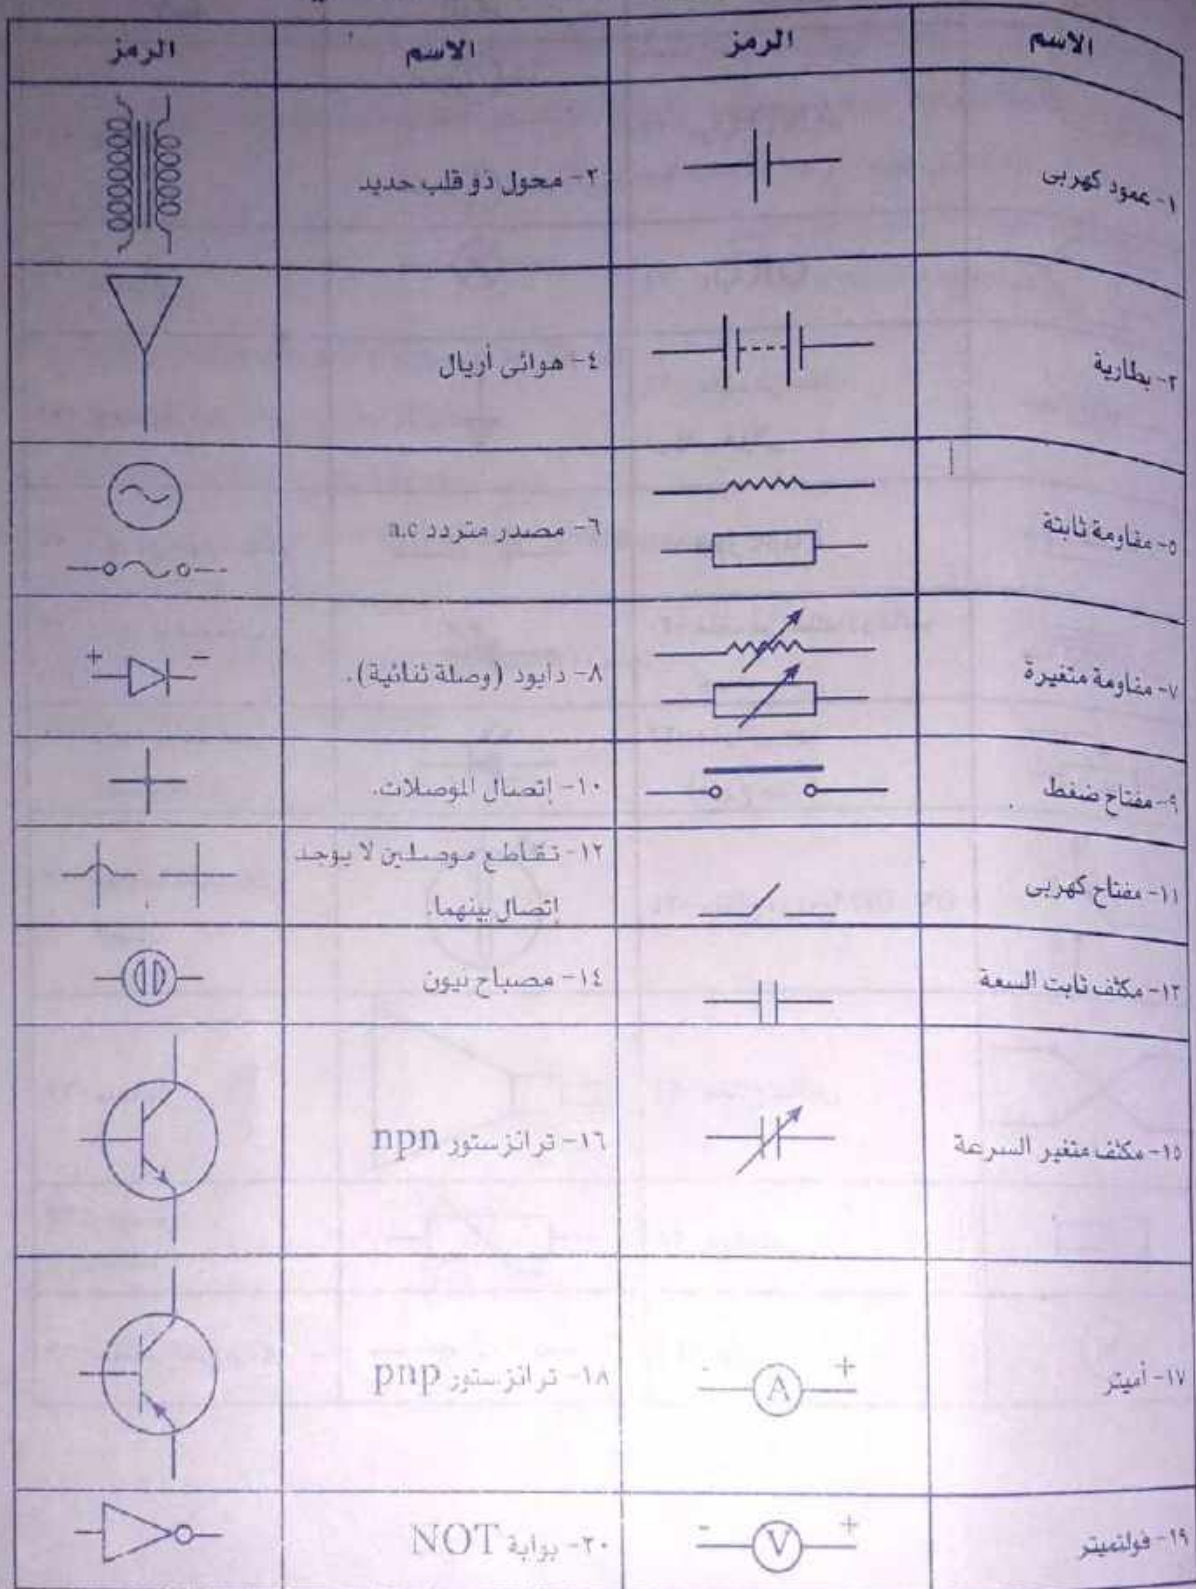 الاسم الرمز الاسم الرمز
١- عمود كهربى
٢- محول ذو قلب حديد
٢- بطارية
٤- هوائى أريال
٥- مقاومة ثابتة
٦- مصدر متردد a.c
٧- مقاومة متغيرة
٨- دايود (وصلة ثنائية).
+ -
٩- مفتاح ضغط
١٠- إتصال الموصلات.
١١- مفتاح كهربى
١٢- تقاطع موصلين لا يوجد
إتصال بينهما.
١٣- مكثف ثابت السعة
١٤- مصباح نيون
١٥- مكثف متغير السرعة
١٦- ترانزستور npn
١٧- أميتر
- A +
١٨- ترانزستور pnp
١٩- فولتميتر
- V +
٢٠- بوابة NOT